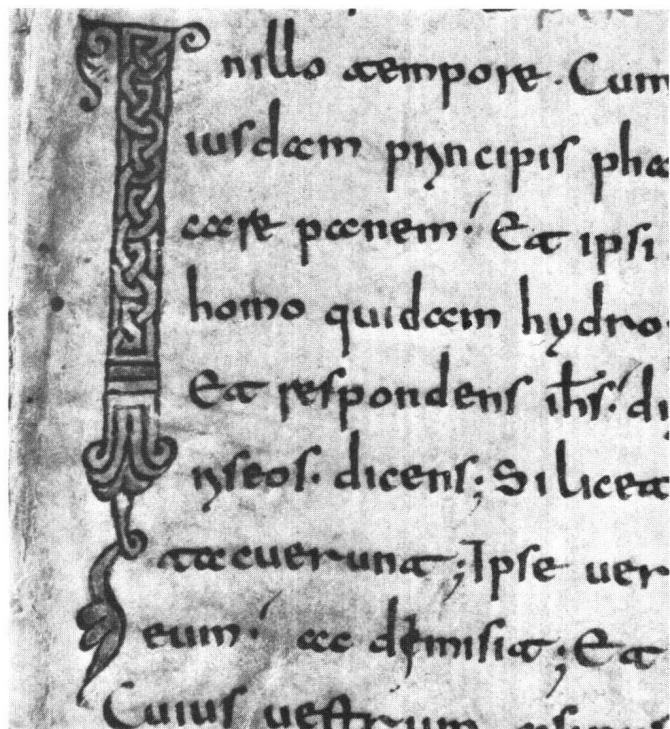 Inillo tempore. Cum
iusdam principis pha
care panem.' Et ipsi
homo quidam hydro
Et respondens ihs.' di
riseos. dicens; Si licet
tacuerunt; Ipse uer
eum.' ac dimisit; Et
Cuius uestrum asinus